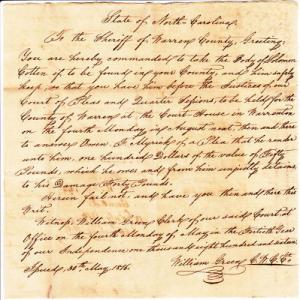 State of North-Carolina,
To the Sheriff of Warren County, Greeting;
You are hereby commanded to take the Body of Solomon
Cotten if to be found in your County, and him safely
keep, so that you have him before the Justices of our
Court of Pleas and Quarter Sessions, to be held for the
County of Warren at the Court House in Warrenton
on the fourth Monday in August next, then and there
to answer Owen Myrick of a Plea that he render
unto him, one hundred Dollars of the value of Fifty
Pounds, which he owes and from him unjustly detains
to his Damage Forty Pounds.
Herein fail not, and have you then and there this
Writ.
Witness William Green Clerk of our said Court at
Office on the fourth Monday of May in the Fortieth Year
of our Independence one thousand eight hundred and sixteen
Issued, 30th May 1816.
William Green